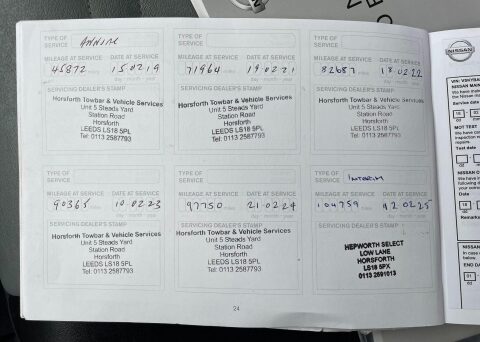 TYPE OF
SERVICE
ANNUAL
MILEAGE AT SERVICE DATE AT SERVICE
45872 miles 15.02.19
day - month - year
SERVICING DEALER'S STAMP
Horsforth Towbar & Vehicle Services
Unit 5 Steads Yard
Station Road
Horsforth
LEEDS LS18 5PL
Tel: 0113 2587793
TYPE OF
SERVICE
MILEAGE AT SERVICE DATE AT SERVICE
71964 miles 19.02.21
day - month - year
SERVICING DEALER'S STAMP
Horsforth Towbar & Vehicle Services
Unit 5 Steads Yard
Station Road
Horsforth
LEEDS LS18 5PL
Tel: 0113 2587793
TYPE OF
SERVICE
MILEAGE AT SERVICE DATE AT SERVICE
82687 miles 18.02.22
day - month - year
SERVICING DEALER'S STAMP
Horsforth Towbar & Vehicle Services
Unit 5 Steads Yard
Station Road
Horsforth
LEEDS LS18 5PL
Tel: 0113 2587793
TYPE OF
SERVICE
MILEAGE AT SERVICE DATE AT SERVICE
90365 miles 10.02.23
day - month - year
SERVICING DEALER'S STAMP
Horsforth Towbar & Vehicle Services
Unit 5 Steads Yard
Station Road
Horsforth
LEEDS LS18 5PL
Tel: 0113 2587793
TYPE OF
SERVICE
MILEAGE AT SERVICE DATE AT SERVICE
97750 miles 21.02.24
day - month - year
SERVICING DEALER'S STAMP
Horsforth Towbar & Vehicle Services
Unit 5 Steads Yard
Station Road
Horsforth
LEEDS LS18 5PL
Tel: 0113 2587793
TYPE OF
SERVICE
INTERIM
MILEAGE AT SERVICE DATE AT SERVICE
104759 miles 12.02.25
day - month - year
SERVICING DEALER'S STAMP
HEPWORTH SELECT
LOW LANE
HORSFORTH
LS18 5PX
0113 2591013
24
NISSAN
NISSAN MAIN
We have
the Nissan
Service date
MOT TEST
We have
inspection
Test date
NISSAN
We have
following
your
Date
Remarks
NISSAN
In case
below.
END DA